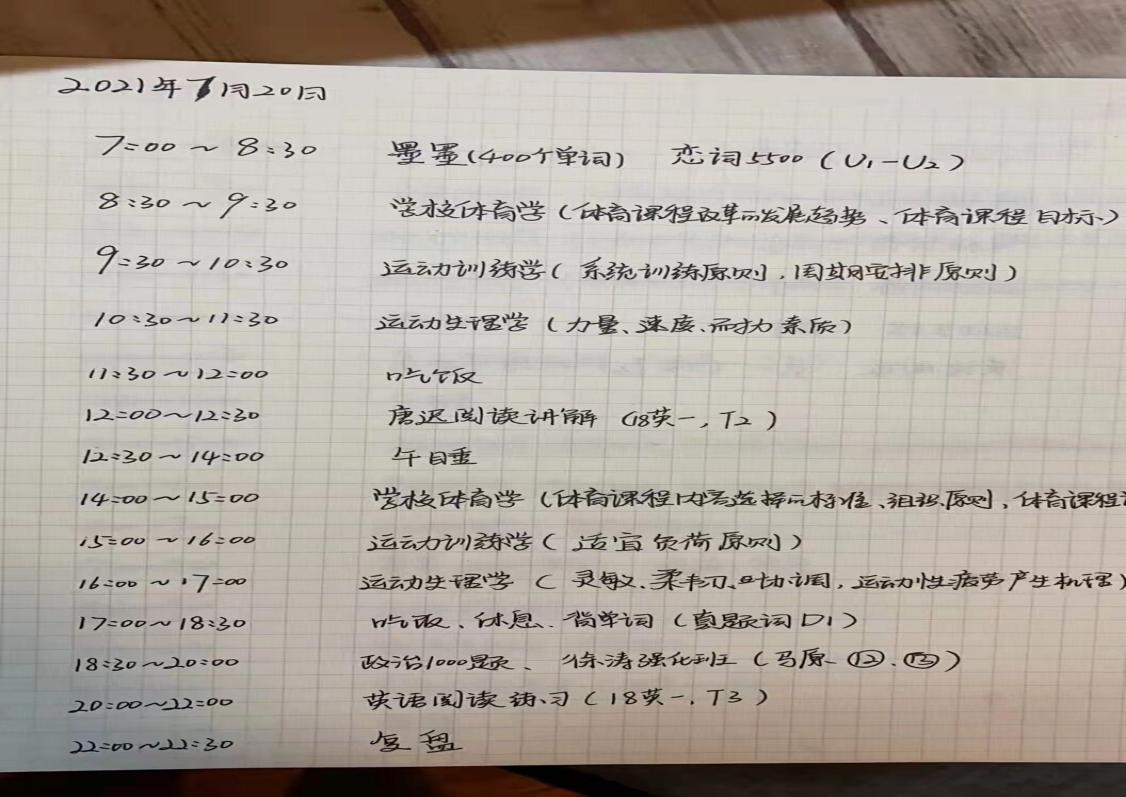 2021年7月20日
7:00~8:30 墨墨(400个单词) 恋词5500(U1-U2)
8:30~9:30 学校体育学(体育课程改革的发展趋势、体育课程目标)
9:30~10:30 运动训练学(系统训练原则,周期安排原则)
10:30~11:30 运动生理学(力量、速度、耐力素质)
11:30~12:00 吃饭
12:00~12:30 唐迟阅读讲解(18英一,T2)
12:30~14:00 午睡
14:00~15:00 学校体育学(体育课程内容选择的标准、组织原则,体育课程
15:00~16:00 运动训练学(适宜负荷原则)
16:00~17:00 运动生理学(灵敏、柔韧、协调,运动性疲劳产生机理)
17:00~18:30 吃饭、休息、背单词(真题词D1)
18:30~20:00 政治1000题、徐涛强化班(马原⑫、⑬)
20:00~22:00 英语阅读练习(18英一,T3)
22:00~22:30 复盘